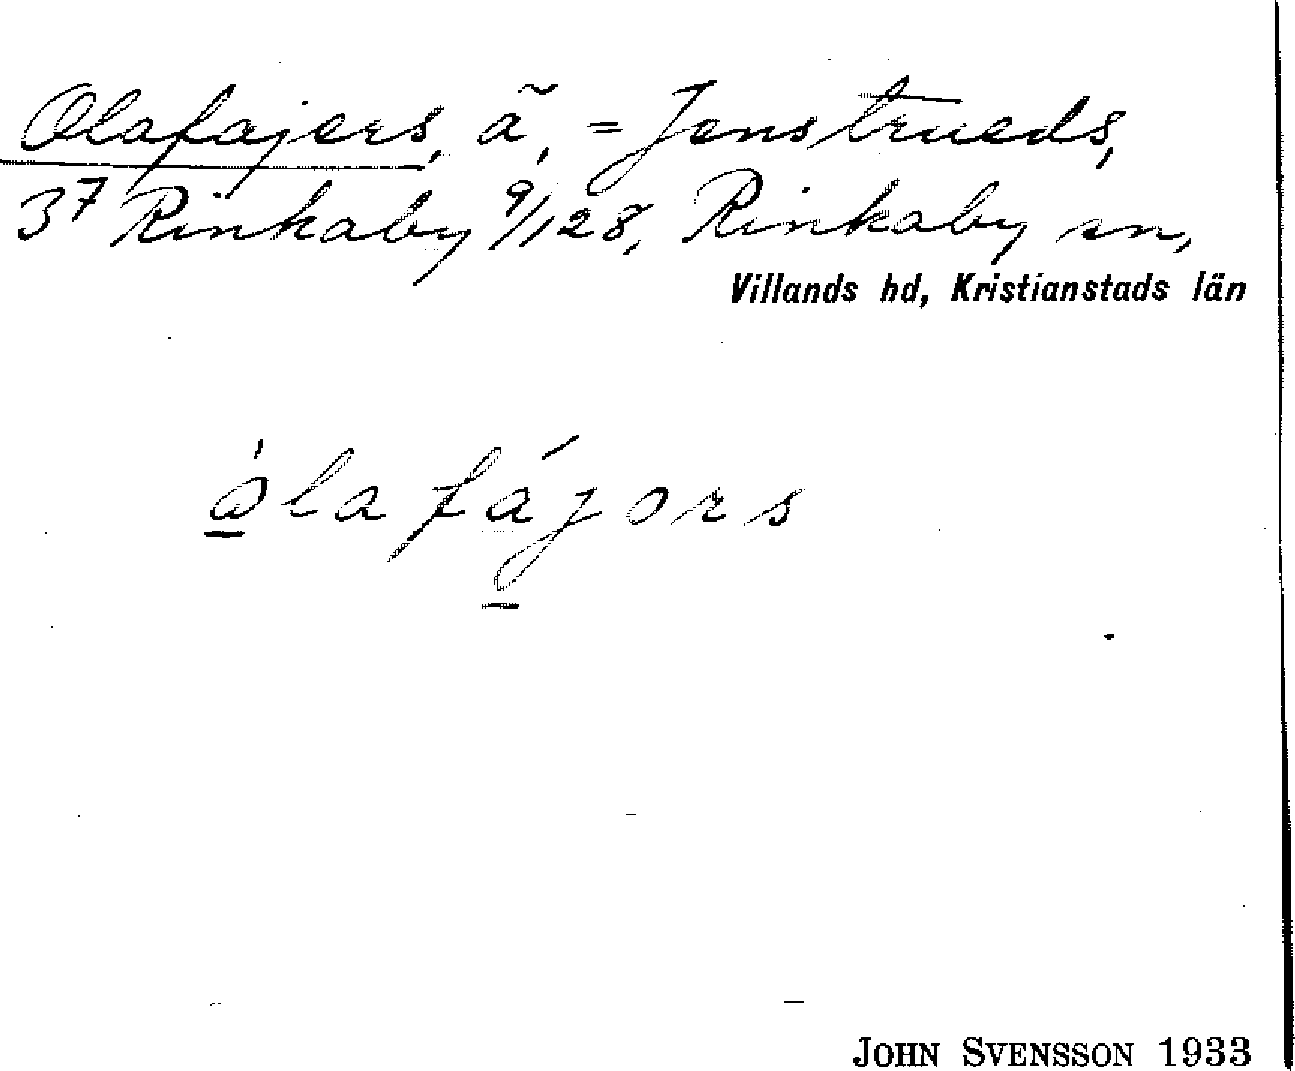 Olafajers, ã, = Jenstrueds,
3⁷ Rinkaby 9/128, Rinkaby sn,
Villands hd, Kristianstads län
òlafájors
JOHN SVENSSON 1933